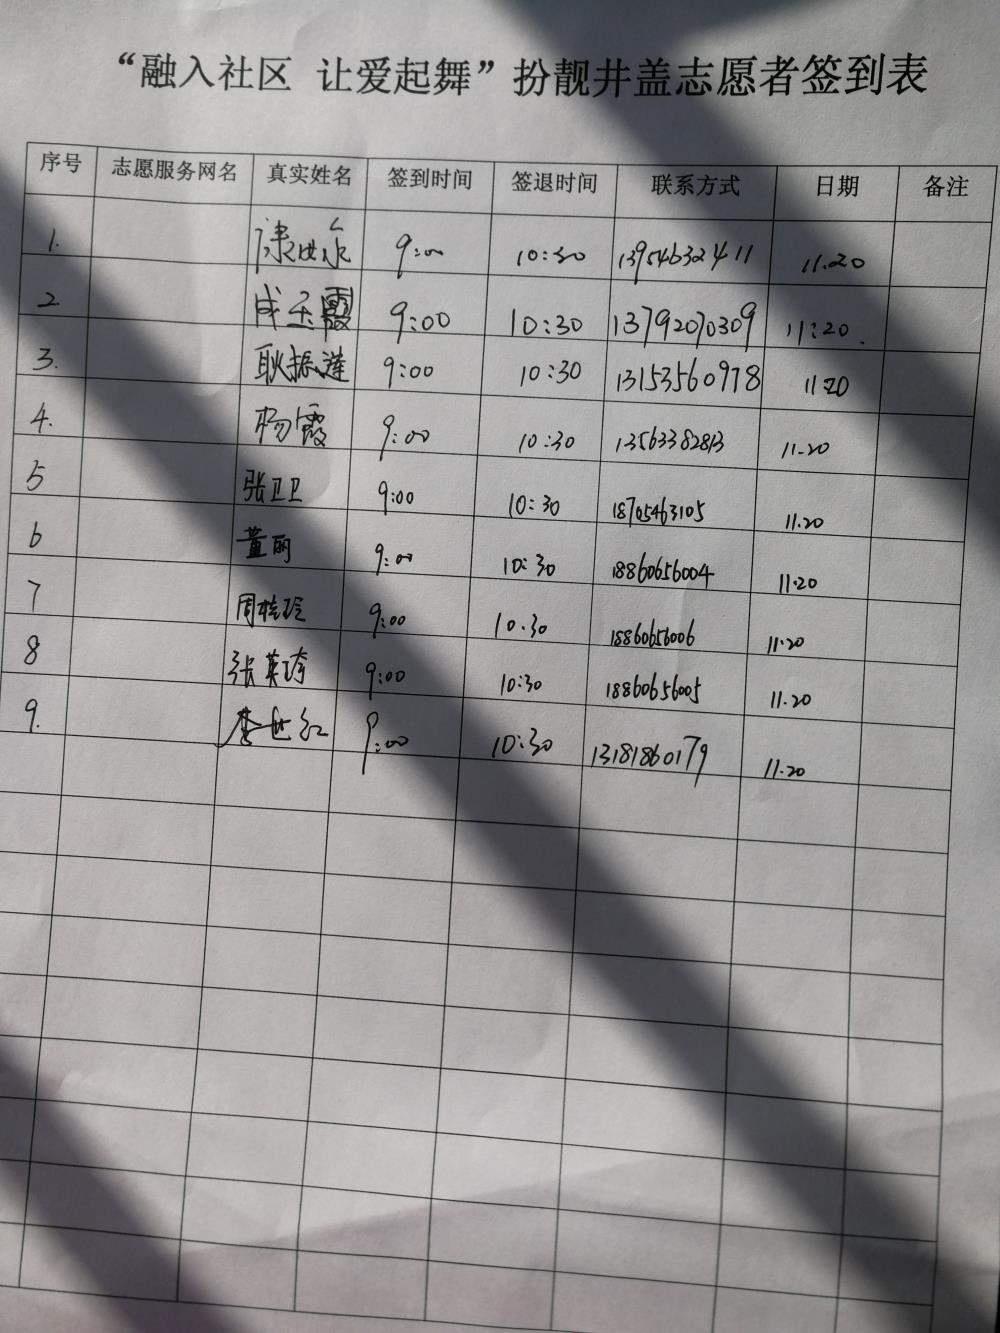 “融入社区 让爱起舞”扮靓井盖志愿者签到表
序号 志愿服务网名 真实姓名 签到时间 签退时间 联系方式 日期 备注
1. 9:00 10:30 13954632411 11.20
2 成玉霞 9:00 10:30 13792070309 11:20.
3. 耿振涟 9:00 10:30 13153560978 11.20
4. 杨霞 9:00 10:30 13563382813 11.20
5 张卫卫 9:00 10:30 18705463105 11.20
6 董丽 9:00 10:30 18860656004 11.20
7 周桂玲 9:00 10.30 18860656006 11.20
8 张英琦 9:00 10:30 18860656005 11.20
9. 李世红 9:00 10:30 13181860179 11.20